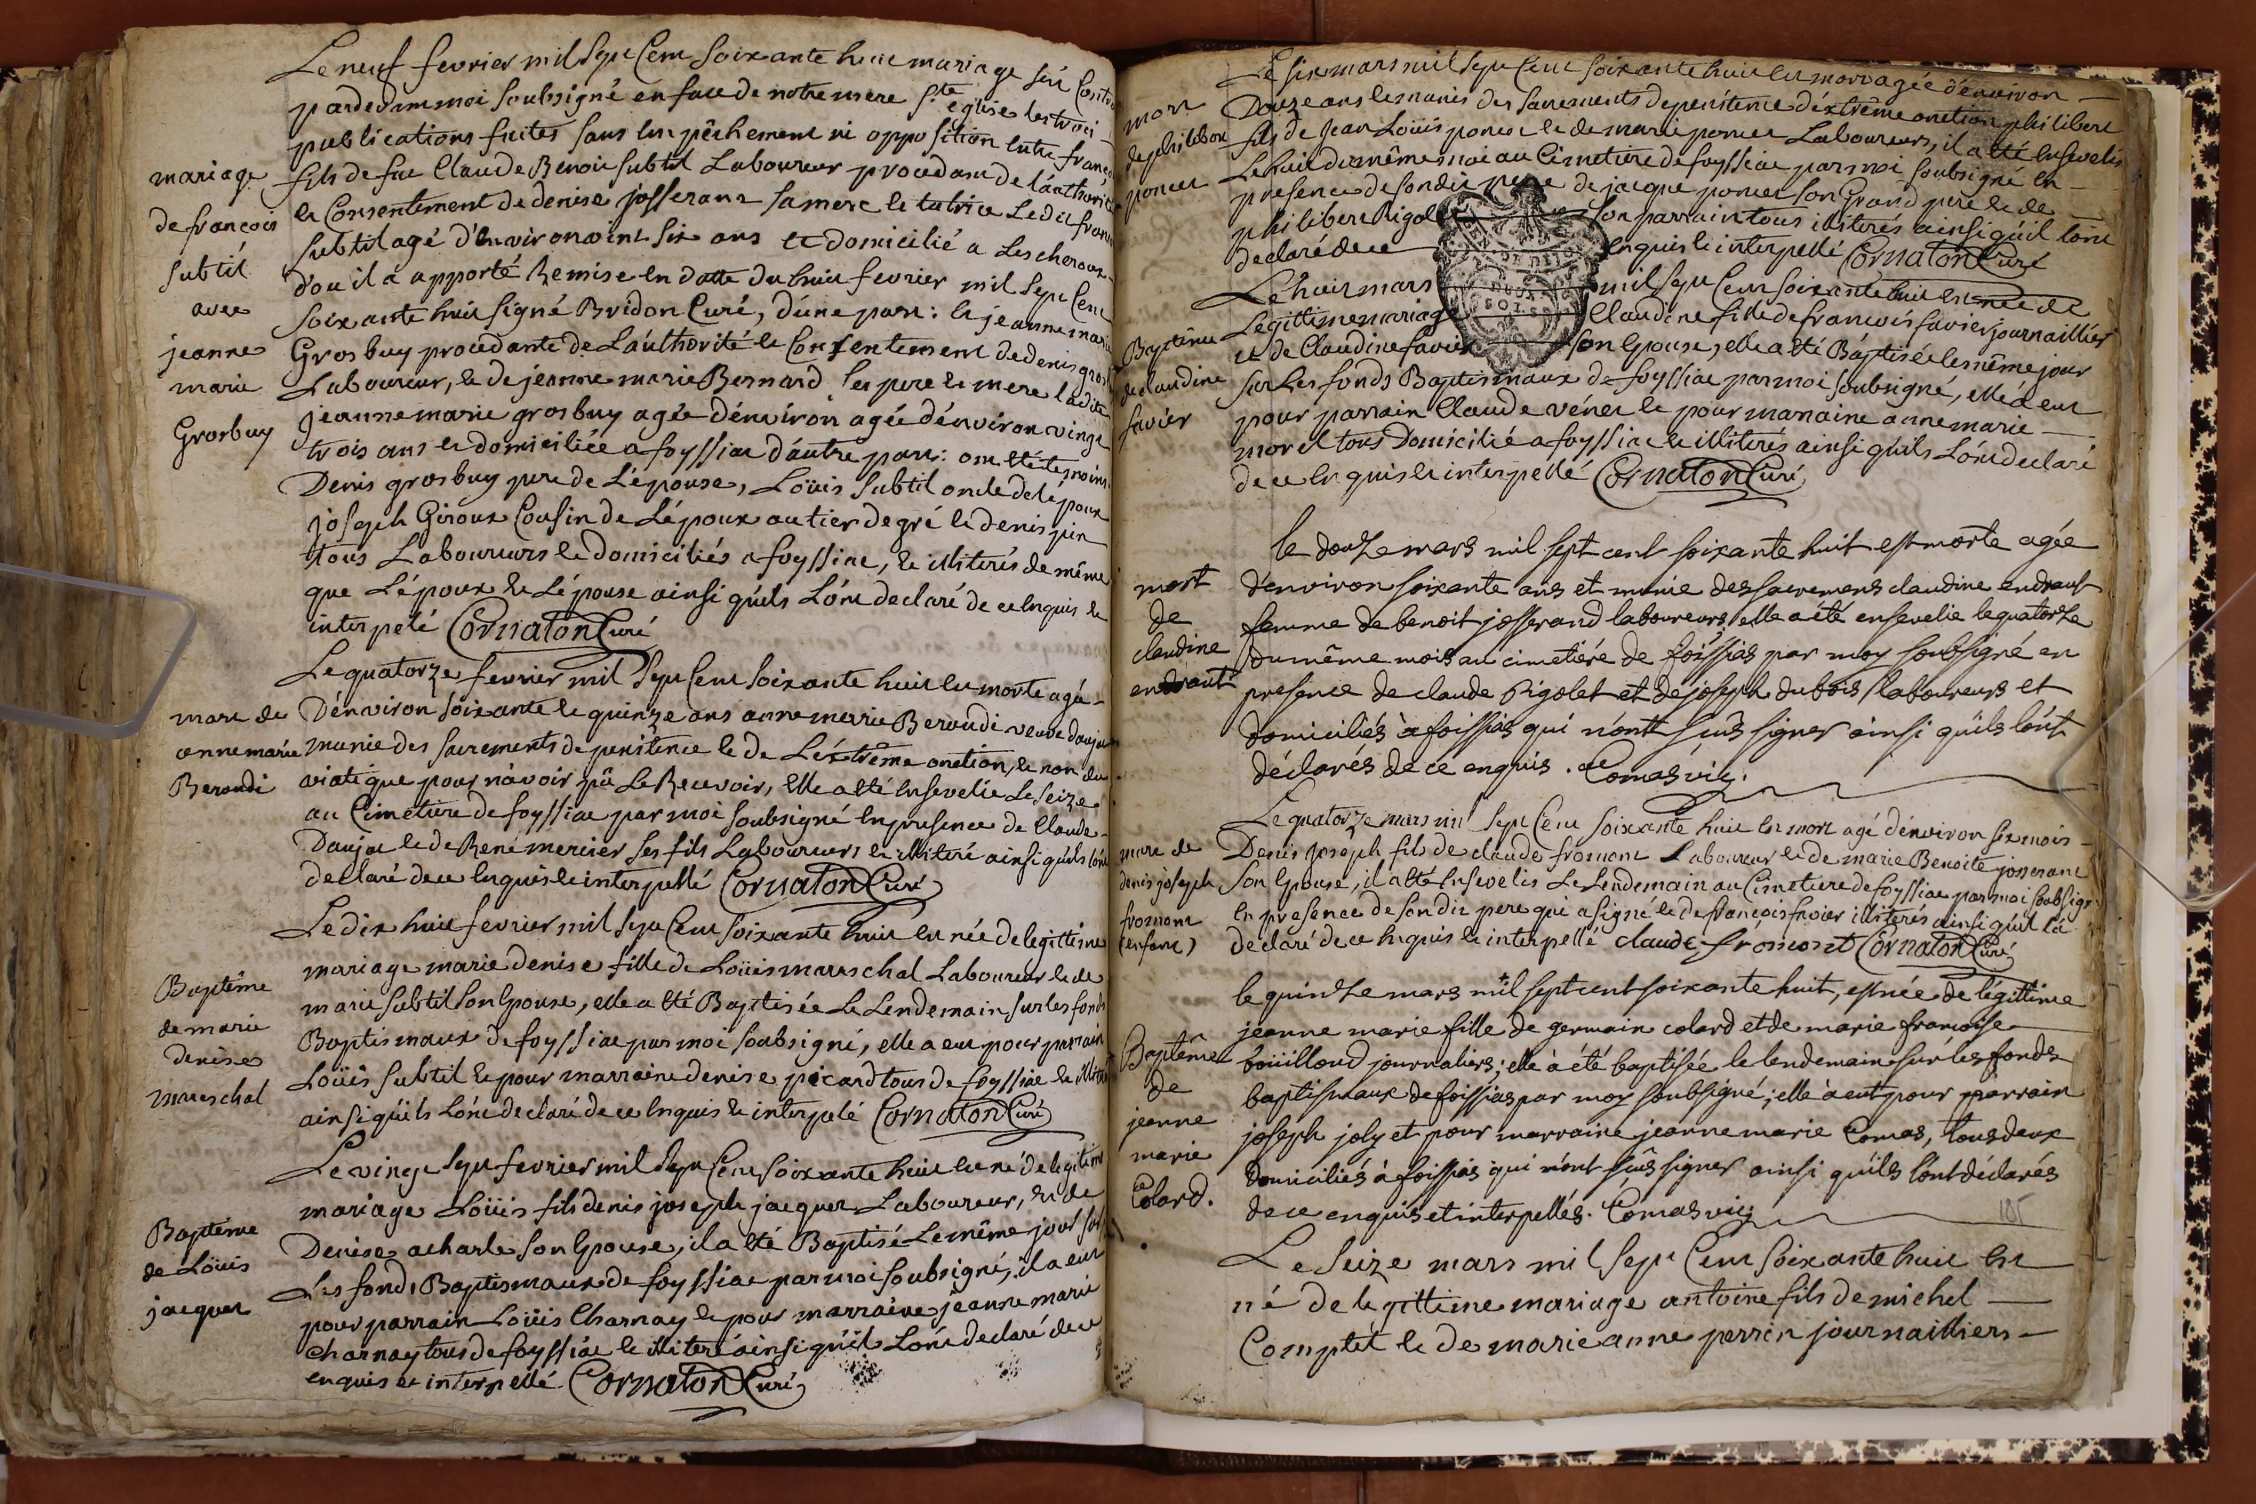 Le neuf fevrier mil sept Cent soixante huit mariage s'est
pardevant moi soubsigné en face de notre mere ste eglise les trois
publications faites sans empêchement ni opposition entre
fils de feu Claude Benoit Subtil Laboureur procedant de l'authorité
et Consentement de denise josserant sa mere et tutrice Ledit
mariage
de francois
subtil
avec
jeanne
marie
Grosbuy
subtil agé d'environ vint six ans et domicilié a Lescheroux
d'ou il a apporté Remise en datte du huit fevrier mil sept Cent
soixante huit signé Bridon Curé, d'une part: et jeanne marie
Grosbuy procedante de L'authorité et Consentement de denis
Laboureur, et de jeanne marie Bernard ses pere et mere ladite
jeanne marie grosbuy agée d'environ agée d'environ vingt
trois ans et domiciliée a foyssiac d'autre part: ont été tesmoins
Denis grosbuy pere de L'épouse, Loüis Subtil oncle de L'époux
joseph Giroux Cousin de L'époux au tier degré et denis
tous Laboureurs et domiciliés a foyssiac, et illiterés de même
que L'époux et L'épouse ainsi qu'ils L'ont declaré de ce Enquis et
interpelé Cornaton Curé
Le quatorze fevrier mil sept Cent soixante huit est morte agée
mort de
anne marie
Beroudi
D'environ soixante et quinze ans anne marie Beroudi veuve
munie des sacrements de penitence et de L'éxtrême onction, et non du
viatique pour n'avoir pû Le Recevoir, Elle a été Ensevelie Le seize
au Cimetiere de foyssiac par moi soubsigné En presence de Claude
Daujat et de René mercier ses fils Laboureurs et illiteré ainsi qu'ils L'ont
declaré de ce Enquis et interpellé Cornaton Curé
Le dix huit fevrier mil sept Cent soixante huit est née de legittime
Baptême
de marie
denise
mareschal
mariage marie denise fille de Loüis mareschal Laboureur et de
marie subtil son Epouse, elle a été Baptisée Le Lendemain sur les fonds
Baptismaux de foyssiac par moi soubsigné, elle a eut pour parrain
Loüis Subtil et pour marraine denise picard tous de foyssiac et
ainsi qu'ils L'ont declaré de ce Enquis et interpelé Cornaton Curé
Le vingt sept fevrier mil sept Cent soixante huit est né de legitime
Baptême
de Loüis
jacquet
mariage Loüis fils denis joseph jacquet Laboureur, et de
Denise acharle son Epouse, il a été Baptisé Le même jour sur
Les fonds Baptismaux de foyssiac par moi soubsigné, il a eut
pour parrain Loüis Charnay et pour marraine jeanne marie
charnay tous de foyssiac et illiteré ainsi qu'il L'ont declaré de ce
enquis et interpellé Cornaton Curé
Le six mars mil sept Cent soixante huit est mort agée d'environ
mort
de philibert
poncet
Douze ans les munis des sacrements de penitence d'éxtrême onction philibert
fils de Jean Loüis poncet et de marie poncet Laboureurs, il a été Ensevelis
Le huit du même moi au Cimetiere de foyssiac par moi soubsigné En
presence de sondit pere de jacque poncet son Grand pere et de
philibert Rigol son parrain tous illiterés ainsi qu'il L'ont
declaré de ce Enquis et interpellé Cornaton Curé
Le huit mars mil sept Cent soixante huit est née de
Baptême
de claudine
favier
Legittime mariage Claudine fille de francois favier journaillier
et de Claudine favier son Epouse, elle a été Baptisée le même jour
sur Les fonds Baptismaux de foyssiac par moi soubsigné, elle a eut
pour parrain Claude vénet et pour marraine anne marie
morel tous Domicilié a foyssiac et illiterés ainsi qu'ils L'ont declaré
de ce Enquis et interpellé Cornaton Curé
le douze mars mil sept cent soixante huit est morte agée
mort
de
claudine
endraut
d'environ soixante ans et munie des sacremens claudine endraut
femme de benoit josserand laboureurs, elle a été ensevelie le quatorze
du même mois au cimetière de foissias par moy soubsigné en
presence de claude Rigolet et de joseph dubois laboureurs et
domiciliés à foissias qui n'ont sûs signer ainsi qu'ils l'ont
déclarés de ce enquis. Comas vic.
Le quatorze mars mil sept Cent soixante huit est mort agé d'environ six mois
mort de
denis joseph
fromont
(enfant)
Denis joseph fils de claude fromont Laboureur et de marie Benoite josserant
son Epouse, il a été Ensevelis Le Lendemain au Cimetiere de foyssiac par moi soubsigné
En presence de son dit pere qui a signé et de françois favier illiterés ainsi qu'il l'a
declaré de ce Enquis et interpellé claude fromont Cornaton Curé
le quinze mars mil sept cent soixante huit, est née de légittime
Baptême
de
jeanne
marie
Colard.
jeanne marie fille de germain colard et de marie francoise
boüilloud journaliers; elle à été baptisée le lendemain sur les fonds
baptismaux de foissias par moy soubsigné; elle à eut pour parrain
joseph joly et pour marraine jeanne marie Comas, tous deux
domiciliés à foissias qui n'ont sûs signer ainsi qu'ils l'ont déclarés
de ce enquis et interpellés. Comas vic.
105
Le seize mars mil sept Cent soixante huit est
né de legittime mariage antoine fils de michel
Comptet et de marie anne perrin journailliers